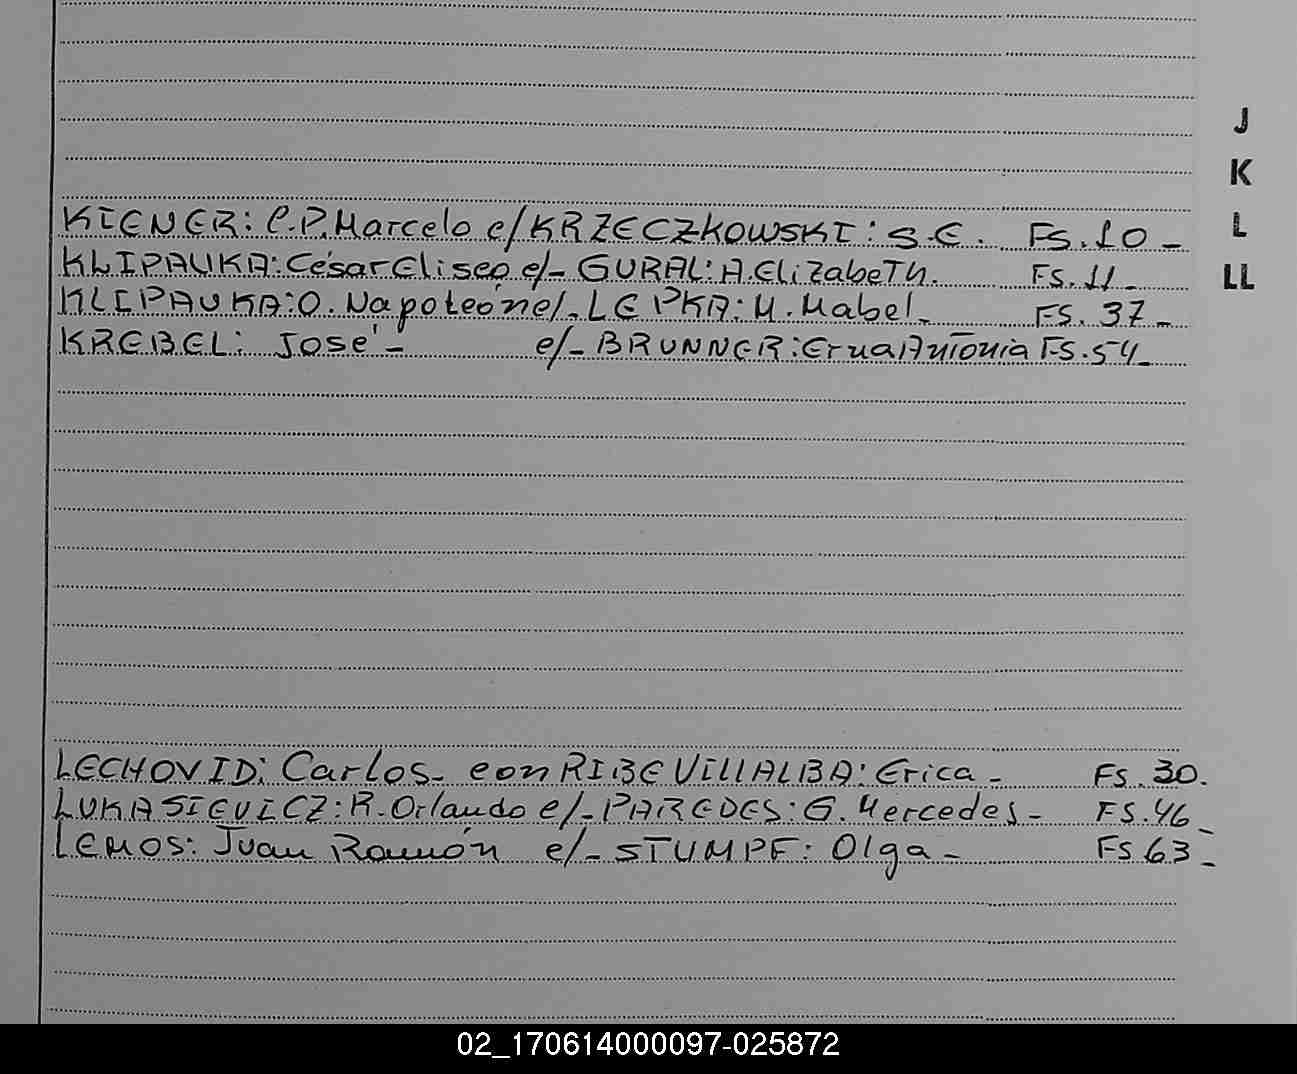 J
K
L
LL
KIENER: C.P. Marcelo c/ KRZECZKOWSKI: S.E. Fs. 10 -
KLIPAUKA: César Eliseo c/- GURAL: A. ElizabeTh. Fs. 11 -
KLIPAUKA: O. Napoleón c/- LEPKA: M. Mabel - FS. 37 -
KREBEL: José - c/- BRUNNER: Erna Antonia FS. 54 -
LECHOVID: Carlos - con RIBE VILLALBA: Erica - Fs. 30.
LUKASIEVICZ: R. Orlando c/- PAREDES: G. Mercedes - FS. 46 -
LEMOS: Juan Ramón c/- STUMPF: Olga - FS 63 -
02_170614000097-025872